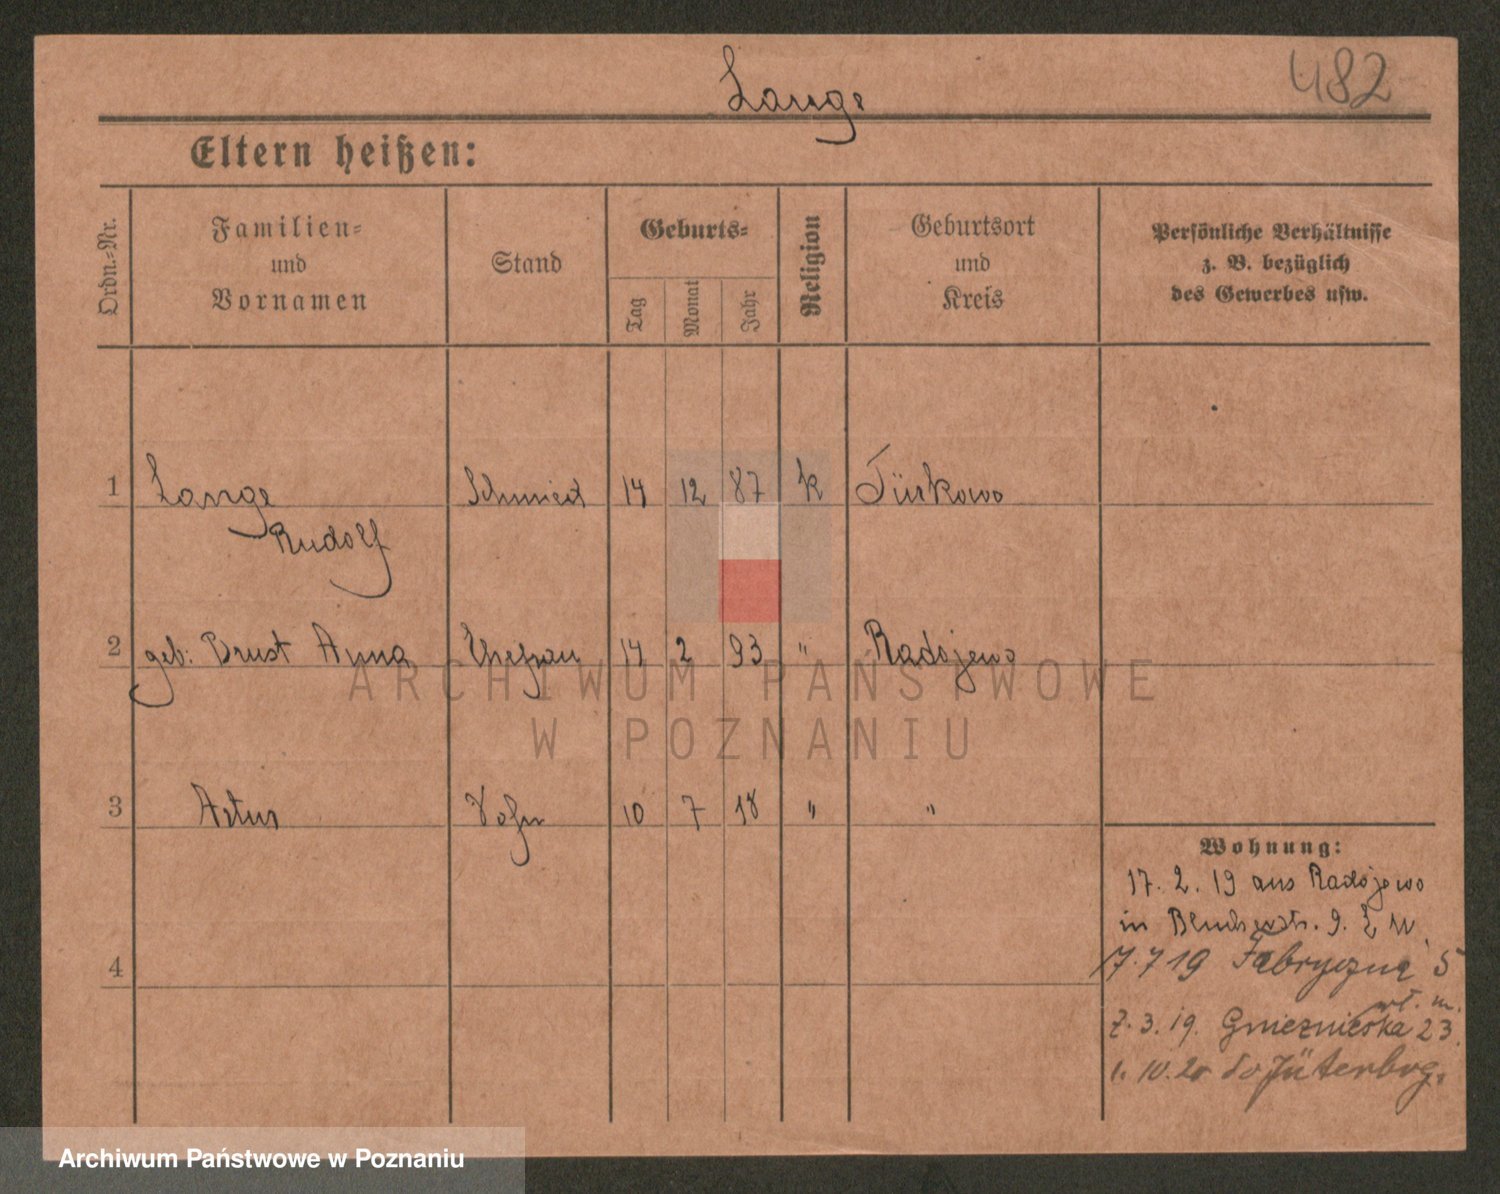 Lange
482
Eltern heißen:
Ordn.-Nr.
Familien-
und
Vornamen
Stand
Geburts-
Tag
Monat
Jahr
Religion
Geburtsort
und
Kreis
Persönliche Verhältnisse
z. B. bezüglich
des Gewerbes usw.
1 Lange Schmied 14 12 87 k Türkowo
Rudolf
2 geb: Brust Anna Ehefrau 14 2 93 " Radojewo
3 Artur Sohn 10 7 18 " "
Wohnung:
17. 2. 19 aus Radojewo
in 9.
4
17.7 19 Fabryczna 5
wł. m.
7. 3. 19. Gnieznieska 23.
1. 10. 20 do Jüterbog.
ARCHIWUM PAŃSTWOWE
W POZNANIU
Archiwum Państwowe w Poznaniu